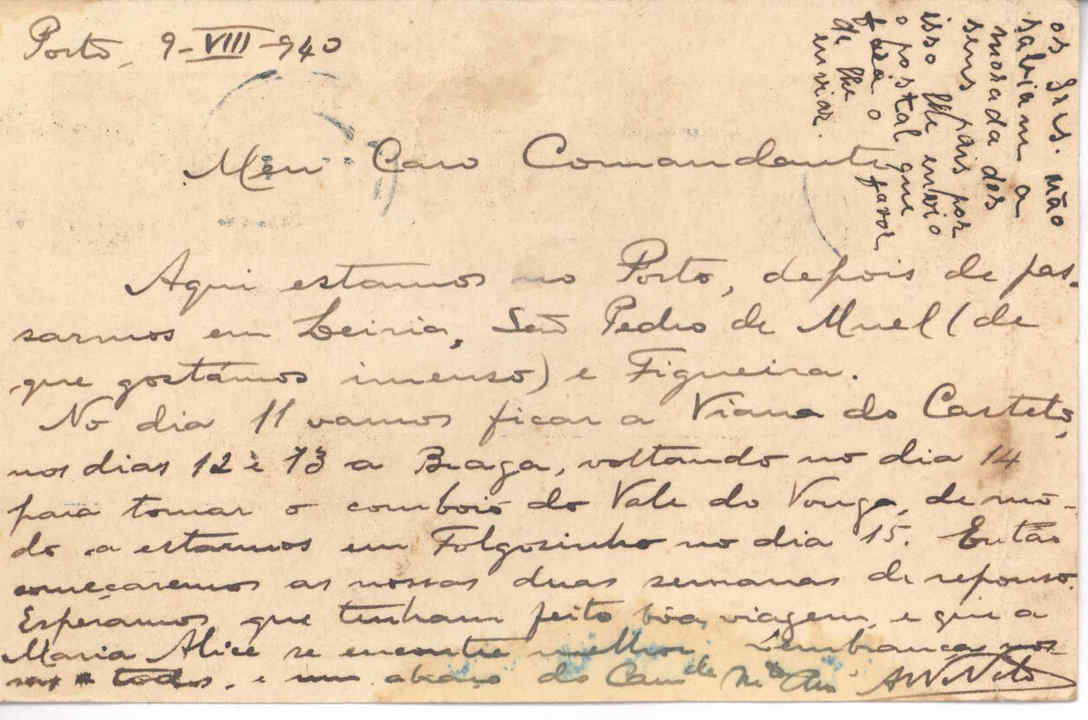 Porto, 9-VIII-940
Meu Caro Comandante
Aqui estamos no Porto, depois de pas-
sarmos em Leiria, São Pedro de Muel (de
que gostámos imenso) e Figueira.
No dia 11 vamos ficar a Viana do Castelo,
nos dias 12 e 13 a Braga, voltando no dia 14
para tomar o comboio do Vale do Vouga, de mo-
do a estarmos em Folgosinho no dia 15. Então
começaremos as nossas duas semanas de repouso.
Esperamos que tenham feito bôa viagem, e que a
Maria Alice se encontre melhor. Lembranças nos-
sas a todos, e um abraço do Cam.da
os Srs. não
sabiam a
morada dos
seus pais por
isso lhe envio
o postal que
fará o favor
de lhe
enviar.